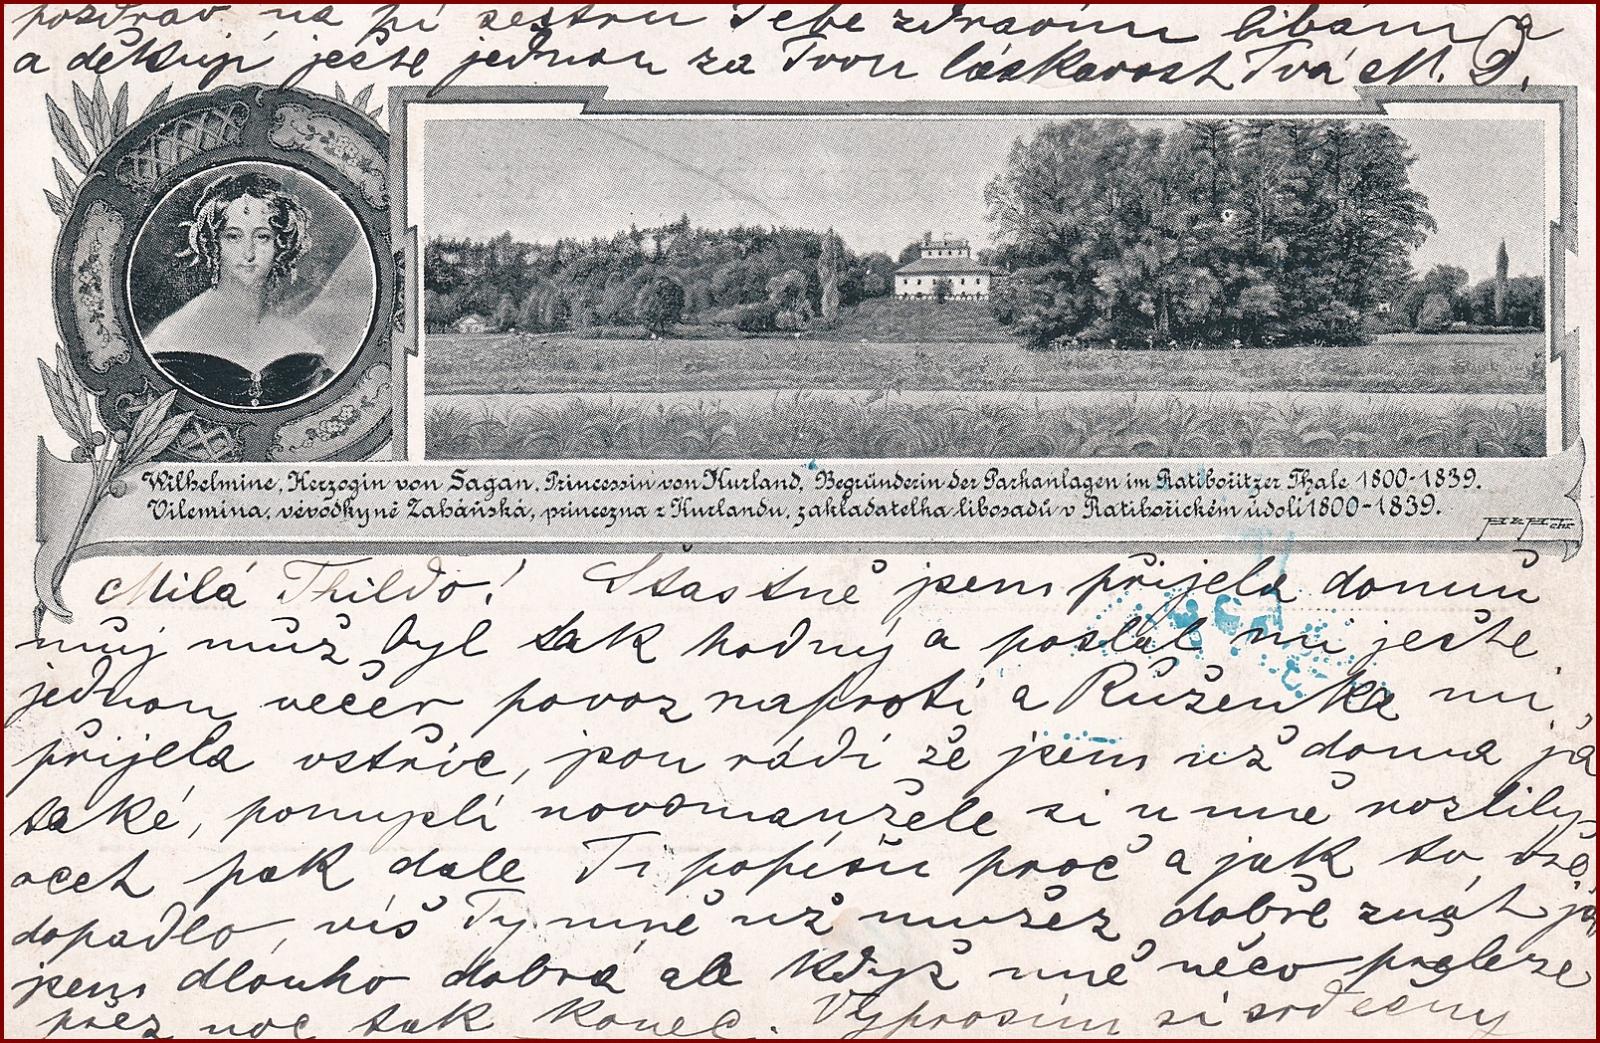 pozdrav na pí sestru Tebe zdravím líbám
a děkuji ještě jednou za Tvou láskavost Tvá M. D.
Wilhelmine, Herzogin von Sagan, Princessin von Kurland, Begründerin der Parkanlagen im Ratibořitzer Thale 1800-1839.
Vilemína, vévodkyně Zaháňská, princezna z Kurlandu, zakladatelka libosadů v Ratibořickém údolí 1800-1839.
Milá Thildo! Štastně jsem přijela domů
můj muž byl tak hodný a poslal mi ještě
jednou večer povoz naproti a Růženka mi
přijela vstříc, jsou rádi že jsem už doma já
také, pomyslí novomanžele si u mně rozlily
ocet pak dale Ti popíšu proč a jak to vše
dopadlo, víš Ty mně už mužeš dobře znát já
jsem dlouho dobrá ale když mně něco přeleze
přez noc tak konec. Vyprosím si srdečny